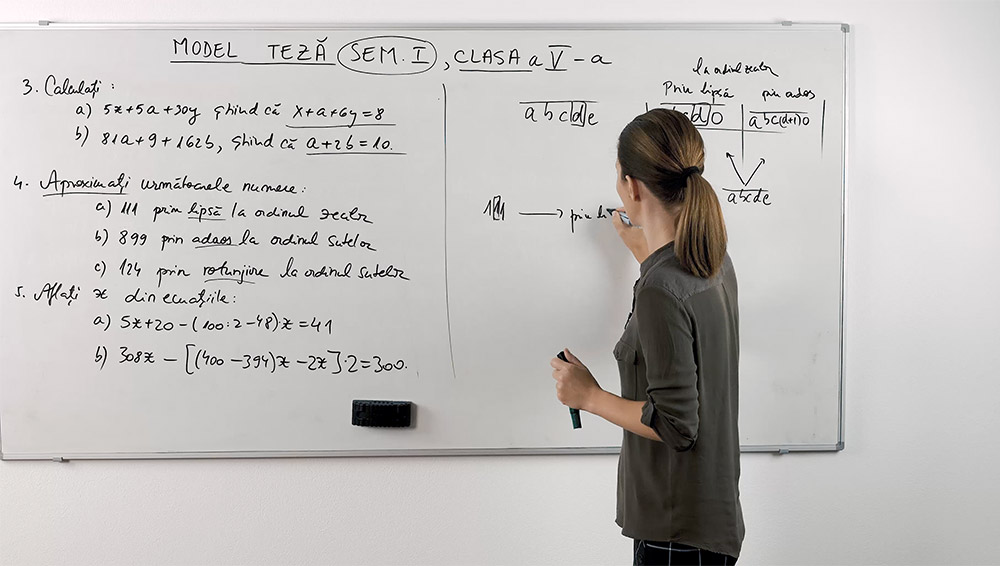 MODEL TEZĂ SEM. I, CLASA a V-a
3. Calculați:
a) 5x+5a+30y știind că x+a+6y=8
b) 81a+9+162b, știind că a+2b=10.
4. Aproximați următoarele numere:
a) 111 prin lipsă la ordinul zecilor
b) 899 prin adaos la ordinul sutelor
c) 124 prin rotunjire la ordinul sutelor
5. Aflați x din ecuațiile:
a) 5x+20-(100:2-48)·x=41
b) 308x-[(400-394)x-2x]·2=300.
la ordinul zecilor
Prin lipsă prin adaos
abcde cd0 abc(d+1)0
abcde
111 → prin li